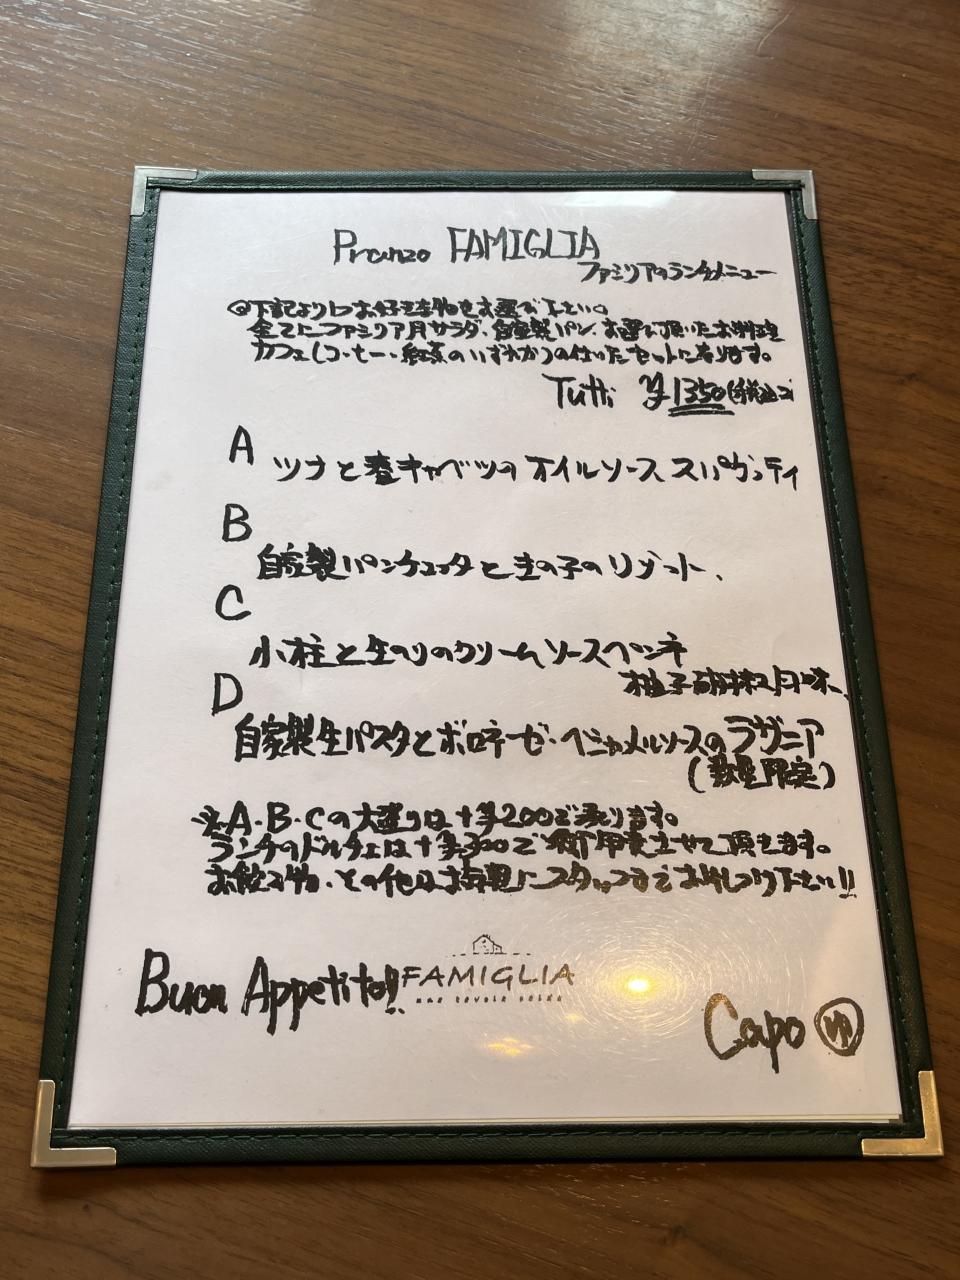 Pranzo FAMIGLIA
ファミリアのランチメニュー
◎下記よりお好きな物をお選び下さい。
全てにファミリア風サラダ、自家製パン、お選び頂いたお料理
カフェ(コーヒー・紅茶のいずれか)の付いたセットになります。
Tutti ¥1350(税込)
A
ツナと春キャベツのオイルソース スパゲッティ
B
自家製パンチェッタときの子のリゾット、
C
小柱と生のりのクリームソースペンネ
柚子胡椒風味、
D
自家製生パスタとボロネーゼ・ベシャメルソースのラザニア
(数量限定)
※A・B・Cの大盛りは+¥200で承ります。
ランチのドルチェは+¥300で御用意させて頂きます。
お飲み物、その他はお気軽にスタッフまでお申しつけ下さい!!
Buon Appetito!!
FAMIGLIA
Capo